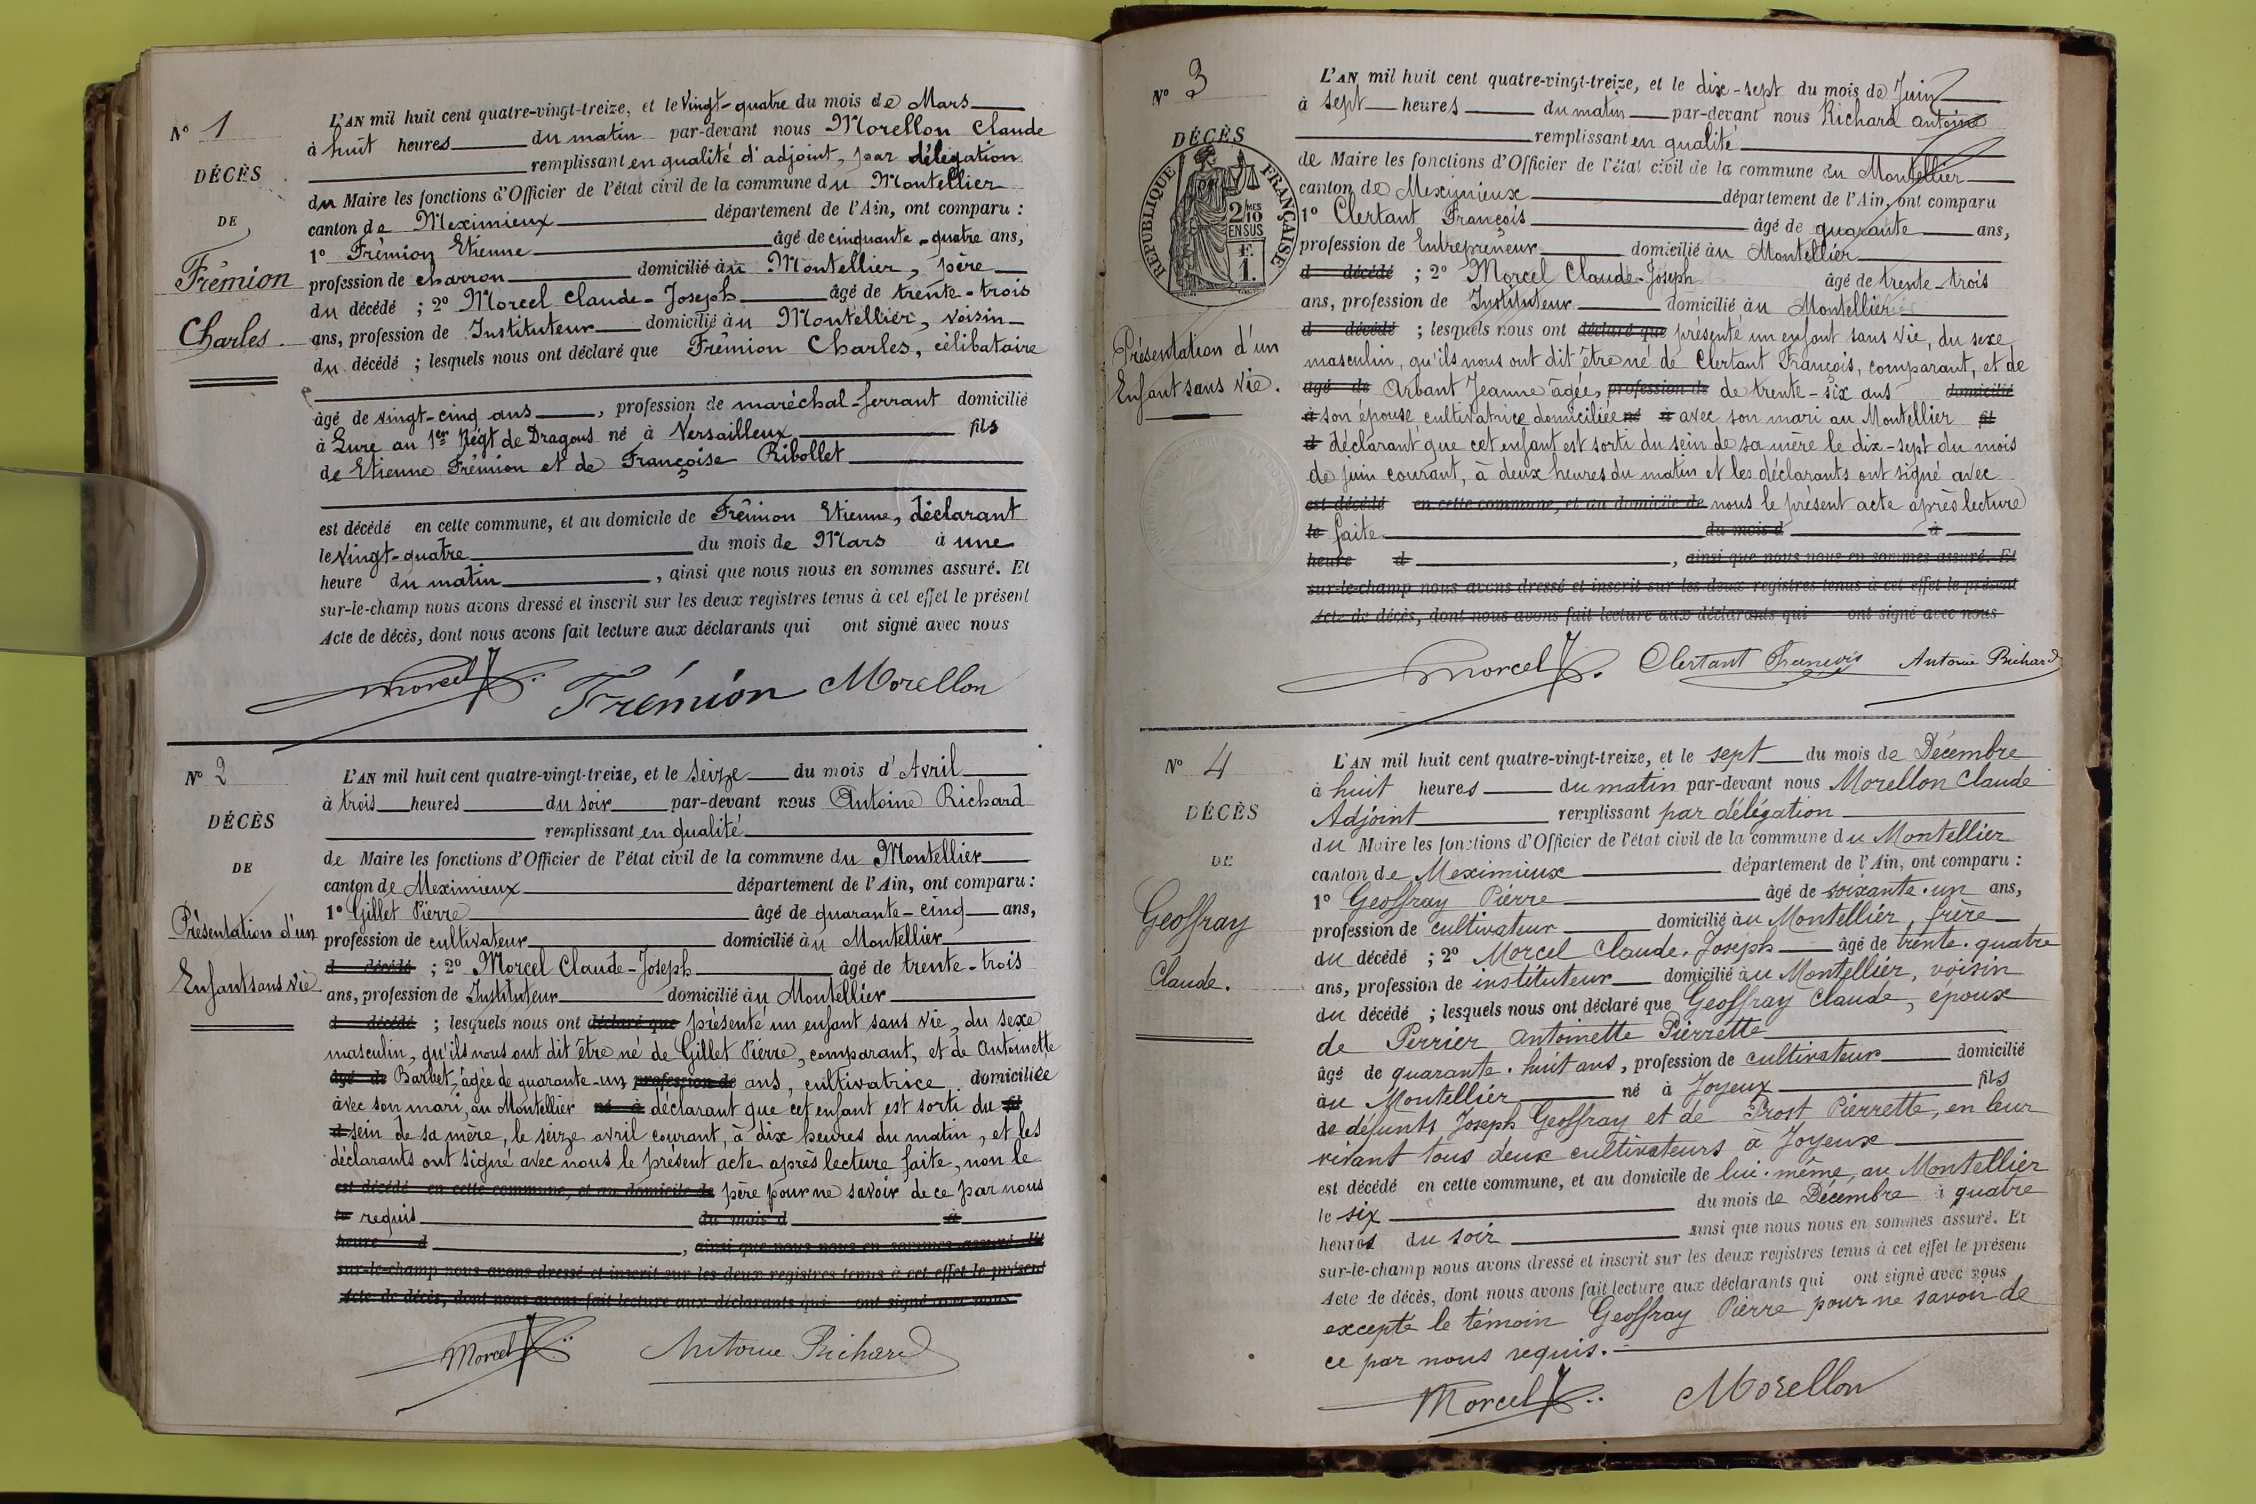 N° 1
DÉCÈS
DE
Frémion
Charles.
L'AN mil huit cent quatre-vingt-treize, et le vingt-quatre du mois de Mars
à huit heures du matin par-devant nous Morellon Claude
remplissant en qualité d'adjoint, par délégation
du Maire les fonctions d'Officier de l'état civil de la commune du Montellier
canton de Meximieux département de l'Ain, ont comparu :
1° Frémion Etienne âgé de cinquante-quatre ans,
profession de charron domicilié au Montellier, père
du décédé ; 2° Morcel Claude-Joseph âgé de trente-trois
ans, profession de Instituteur domicilié au Montellier, voisin
du décédé ; lesquels nous ont déclaré que Frémion Charles, célibataire
âgé de vingt-cinq ans, profession de maréchal-ferrant domicilié
à Lure au 1er Régt de Dragons né à Versailleux fils
de Etienne Frémion et de Françoise Ribollet
est décédé en cette commune, et au domicile de Frémion Etienne, déclarant
le vingt-quatre du mois de Mars à une
heure du matin, ainsi que nous nous en sommes assuré. Et
sur-le-champ nous avons dressé et inscrit sur les deux registres tenus à cet effet le présent
Acte de décès, dont nous avons fait lecture aux déclarants qui ont signé avec nous
Morcel Frémion Morellon
N° 2
DÉCÈS
DE
Présentation d'un
Enfant sans vie
L'AN mil huit cent quatre-vingt-treize, et le seize du mois d'Avril
à trois heures du soir par-devant nous Antoine Richard
remplissant en qualité
de Maire les fonctions d'Officier de l'état civil de la commune du Montellier
canton de Meximieux département de l'Ain, ont comparu :
1° Gillet Pierre âgé de quarante-cinq ans,
profession de cultivateur domicilié au Montellier
d décédé ; 2° Morcel Claude-Joseph âgé de trente-trois
ans, profession de Instituteur domicilié au Montellier
d décédé ; lesquels nous ont déclaré que présenté un enfant sans vie, du sexe
masculin, qu'ils nous ont dit être né de Gillet Pierre, comparant, et de Antoinette
âgé de Barbet, âgée de quarante-un, profession de ans, cultivatrice domiciliée
avec son mari, au Montellier né à déclarant que cet enfant est sorti du fil
d sein de sa mère, le seize avril courant, à dix heures du matin, et les
déclarants ont signé avec nous le présent acte après lecture faite, non le
est décédé en cette commune, et au domicile de père pour ne savoir de ce par nous
le requis du mois d à
heure d , ainsi que nous nous en sommes assuré. Et
sur-le-champ nous avons dressé et inscrit sur les deux registres tenus à cet effet le présent
Acte de décès, dont nous avons fait lecture aux déclarants qui ont signé avec nous
Morcel Antoine Richard
N° 3
DÉCÈS
RÉPUBLIQUE FRANÇAISE
2 MES
10
EN SUS
F.
1.
Présentation d'un
Enfant sans vie.
L'AN mil huit cent quatre-vingt-treize, et le dix-sept du mois de Juin
à sept heures du matin par-devant nous Richard Antoine
remplissant en qualité
de Maire les fonctions d'Officier de l'état civil de la commune du Montellier
canton de Meximieux département de l'Ain, ont comparu
1° Clertant François âgé de quarante ans,
profession de Entrepreneur domicilié au Montellier
d décédé ; 2° Morcel Claude-Joseph âgé de trente-trois
ans, profession de Instituteur domicilié au Montellier
d décédé ; lesquels nous ont déclaré que présenté un enfant sans vie, du sexe
masculin, qu'ils nous ont dit être né de Clertant François, comparant, et de
âgé de Arbant Jeanne âgée, profession de de trente-six ans domicilié
à son épouse cultivatrice domiciliée né à avec son mari au Montellier fil
d déclarant que cet enfant est sorti du sein de sa mère le dix-sept du mois
de juin courant, à deux heures du matin et les déclarants ont signé avec
est décédé en cette commune, et au domicile de nous le présent acte après lecture
le faite du mois d à
heure d , ainsi que nous nous en sommes assuré. Et
sur-le-champ nous avons dressé et inscrit sur les deux registres tenus à cet effet le présent
Acte de décès, dont nous avons fait lecture aux déclarants qui ont signé avec nous
Morcel Clertant François Antoine Richard
N° 4
DÉCÈS
DE
Geoffray
Claude.
L'AN mil huit cent quatre-vingt-treize, et le sept du mois de Décembre
à huit heures du matin par-devant nous Morellon Claude
Adjoint remplissant par délégation
du Maire les fonctions d'Officier de l'état civil de la commune du Montellier
canton de Meximieux département de l'Ain, ont comparu :
1° Geoffray Pierre âgé de soixante-un ans,
profession de cultivateur domicilié au Montellier, frère
du décédé ; 2° Morcel Claude-Joseph âgé de trente-quatre
ans, profession de instituteur domicilié au Montellier, voisin
du décédé ; lesquels nous ont déclaré que Geoffray Claude, époux
de Perrier Antoinette Pierrette
âgé de quarante-huit ans, profession de cultivateur domicilié
au Montellier né à Joyeux fils
de défunts Joseph Geoffray et de Prost Pierrette, en leur
vivant tous deux cultivateurs à Joyeux
est décédé en cette commune, et au domicile de lui-même, au Montellier
le six du mois de Décembre à quatre
heures du soir ainsi que nous nous en sommes assuré. Et
sur-le-champ nous avons dressé et inscrit sur les deux registres tenus à cet effet le présent
Acte de décès, dont nous avons fait lecture aux déclarants qui ont signé avec nous
excepté le témoin Geoffray Pierre pour ne savoir de
ce par nous requis.
Morcel Morellon